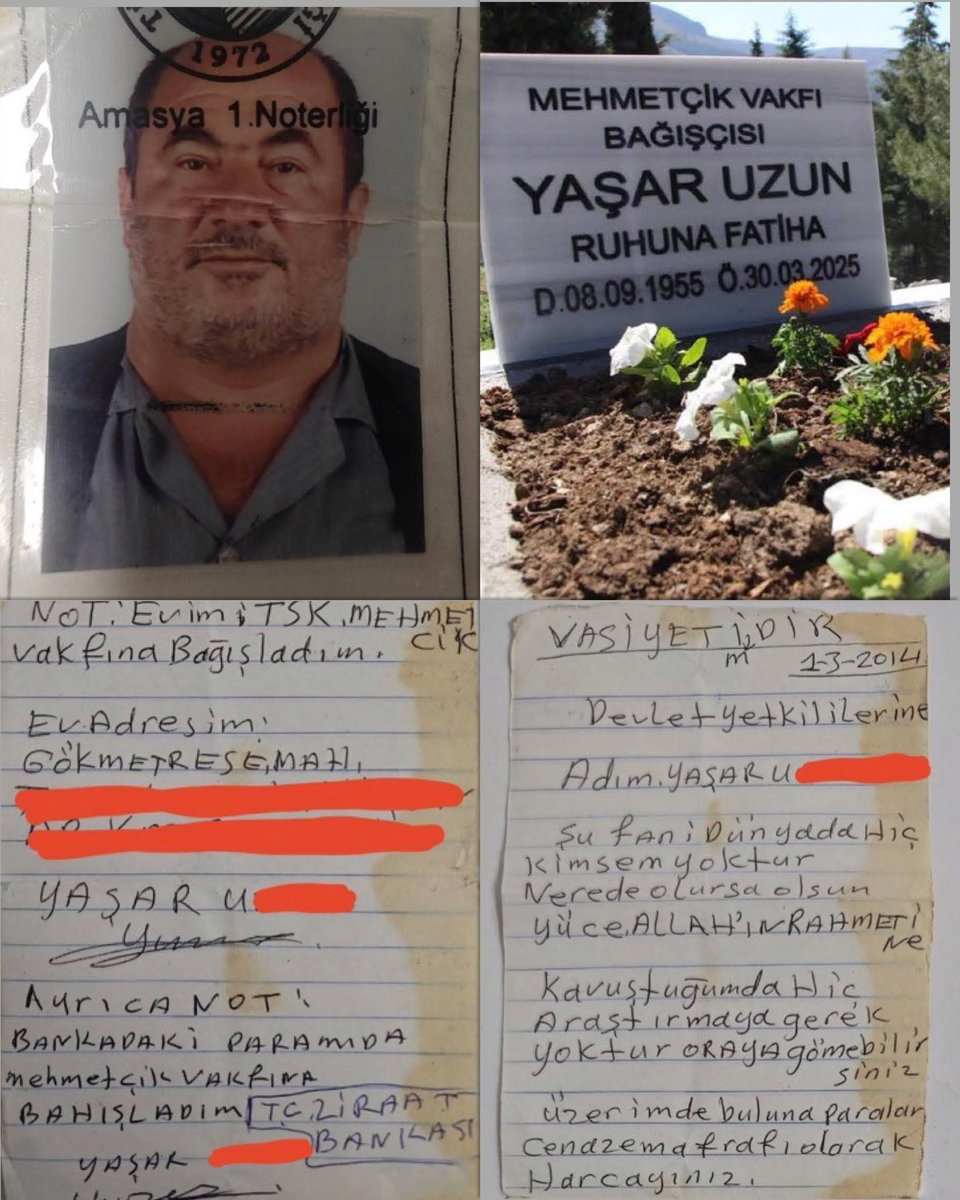 1972
Amasya 1.Noterliği
MEHMETÇİK VAKFI
BAĞIŞÇISI
YAŞAR UZUN
RUHUNA FATİHA
D.08.09.1955 Ö.30.03.2025
NOT: Evimi TSK, MEHMET
ÇİK
vakfına Bağışladım.
Ev Adresim:
GÖKMETRESE, MAH,
YAŞAR U
Ayrıca NOT:
BANKADAKİ PARAMIDA
mehmetçik VAKFINA
BAHIŞLADIM TC. ZİRAAT
BANKASI
YAŞAR
VASİYETİ, DİR
m
1-3-2014
Devlet yetkililerine
Adım. YAŞAR U
Şu fani Dünyada Hiç
Kimsem yoktur
Nerede olursa olsun
yüce, ALLAH'IN RAHMETİ
Ne
Kavuştuğumda Hiç
Araştırmaya gerek
yoktur ORAYA gömebilir
siniz
üzerimde buluna paralar
cenaze mafrafı olarak
Harcayınız.